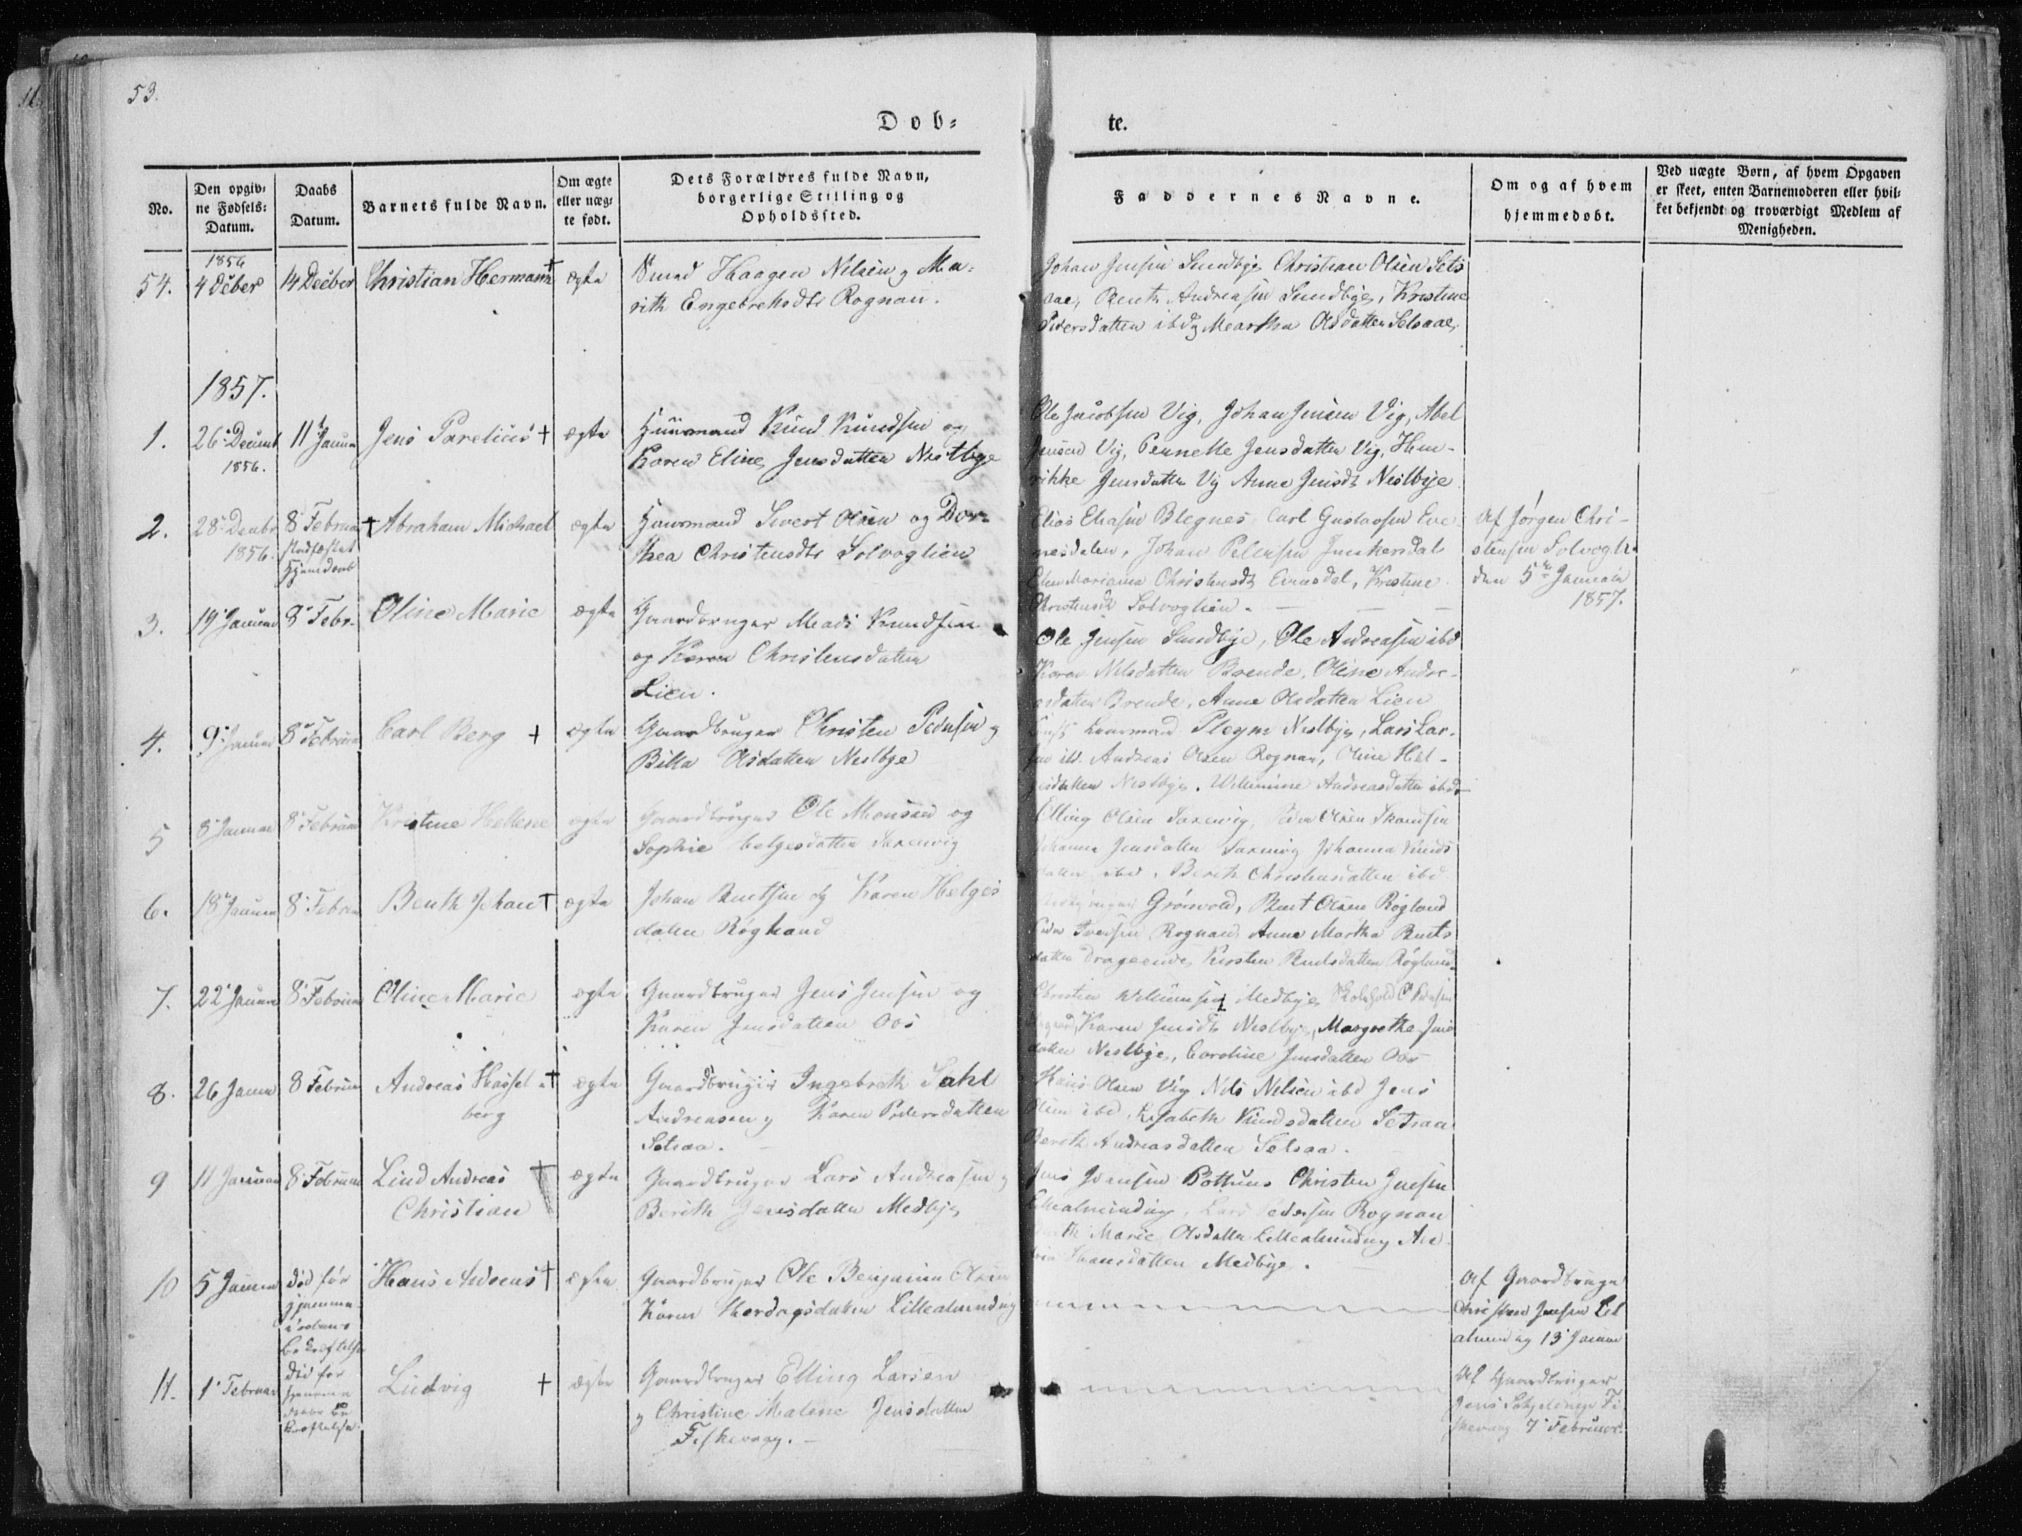 53.
Döb=
te.
No.
Den opgiv=
ne Fødsels=
Datum.
Daabs
Datum.
Barnets fulde Navn.
Om ægte
eller uæg=
te født.
Dets Forældres fulde Navn,
borgerlige Stilling og
Opholdssted.
Faddernes Navne.
Om og af hvem
hjemmedøbt.
Ved uægte Børn, af hvem Opgaven
er skeet, enten Barnemoderen eller hvil=
ket bekjendt og troværdigt Medlem af
Menigheden.
1856
54. 4 Deber 14 Deeber Christian Hermann † ægte
Smed Haagen Nilsen og Ma=
rith Engebrektsdtr Rognan.
Johan Jensen Sundbye, Christian Olsen Sets
aae, Benth Andreasen Sundbye, Kristine
Pedersdatten ibd og Martha Olsdatten Setsaae
1857.
1. 26 Decemb 1856. 11 Janua Jens Parelius † ægte
Huusmand Knud Knudsen og
Karen Eline Jensdatten Nestbye
Ole Jacobsen Vig, Johan Jensen Vig, Abel
Jensen Vig, Pernelle Jensdatten Vig, Hen=
rikke Jensdatten Vig Anne Jensdt Nestbye
2. 28 Decbr 1856. 8 Februar
stadfæstet
Hjemdaab
† Abraham Michael ægte
Huusmand Sivert Olsen og Dor=
thea Christensdtr Solvoglien
Elias Eliasen Blegnes, Carl Gustavsen Eve
nesdalen, Johan Petersen Junkersdal
Christensdt Evensdal, Kristine
Christensdt Solvoglien.
Af Jørgen Chri=
stensen Solvogli
den 5te Januar
1857.
3. 19 Januar 8 Febr. Oline Marie ægte
Gaardbruger Mads Knudsen
og Karen Christensdatten
Lien.
Ole Jensen Sundbye, Ole Andreasen ibd
Karen Nilsdatten Brende, Oline Andre=
asdatten Brende, Anne Olsdatten Lien
4. 9 Januar 8 Februar Carl Berg † ægte
Gaardbruger Christen Pedersen og
Bitta Olsdatten Nestbye
Plegm Nestbye, Lars Lar=
sen ibd. Andreas Olsen Rognan, Oline Hel=
gesdatten Nestbye, Willumine Andreasdatten ibd
5 8 Januar 8 Februar Kristine Hellene ægte
Gaardbruger Ole Monsen og
Sophie Helgesdatten Saxenvig
Elling Olsen Saxenvig, Peder Olsen
Johanna Jensdatten Saxenvig Johanna Knuds
datten ibd. Berith Christensdatten ibd.
6. 18 Januar 8 Februar Benth Johan † ægte
Johan Bentsen og Karen Helges
datten Røgland
Grønvold, Bent Olsen Røgland
Peder Iversen Rognan, Anne Martha Bents
datten Drageeide, Kirsten Bentsdatten Røgland
7. 22 Januar 8 Februar Oline Marie ægte
Gaardbruger Jens Jensen og
Karen Jensdatten Oos
Christen Willumsen Medbye,
Karen Jensdt Nestbye, Margrethe Jens
datten Nestbye, Caroline Jensdatten Oos
8. 26 Janua 8 Februar Andreas Hassel
berg † ægte
Gaardbruger Ingebreth Sahl
Andreasen og Karen Pedersdatten
Setsaa.
Hans Olsen Vig Nils Nilsen ibd Jens
Olsen ibd, Elisabeth Knudsdatten Setsaa
Berith Andreasdatten Setsaa.
9 11 Januar 8 Februar Lind Andreas
Christian † ægte
Gaardbruger Lars Andreasen og
Berith Jensdatten Medbye
Jens Jensen Bottnes Christen Jensen
Lillealmindning, Lars Pedersen Rognan
Marie Olsdatten Lillealmindning
Hansdatten Medbye.
10 5 Januar død før
hjemme=
daabens
Bekræftelse
Hans Andreas † ægte
Gaardbruger Ole Benjamin Olsen
Karen Hordagsdatten Lillealmindng
Af Gaardbruger
Christen Jensen Lil
almindng 13 Januar
11. 1 Februar død før
hjemme
daabs Be
kræftelse.
Ludvig † ægte
Gaardbruger Elling Larsen
og Christine Malene Jensdatten
Fiskevaag.
Af Gaardbruger
Jens Fi
skevaag 7 Februar.